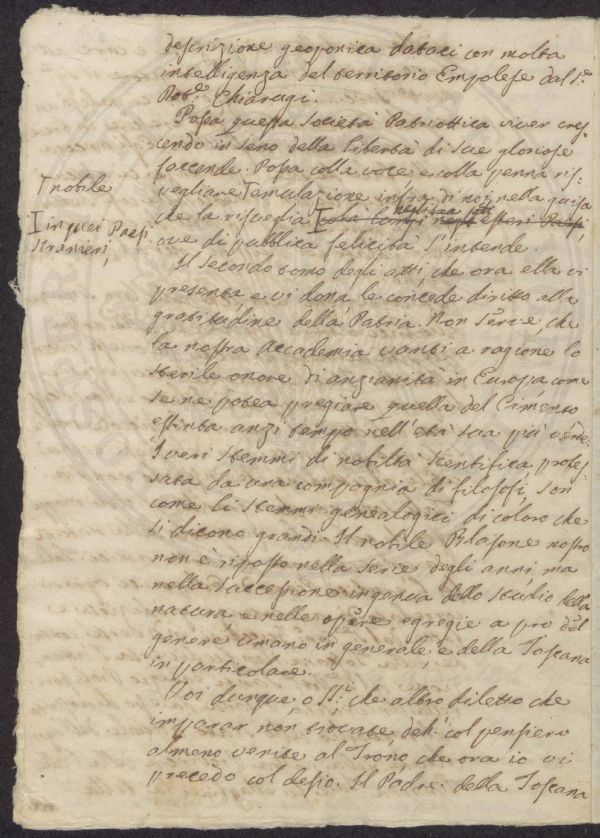 descrizione geoponica dataci con molta
intelligenza del territorio Empolese dal Sr.
Dote. Chiarugi.
Possa questa società Patriottica viver cres-
cendo in seno della libertà di sue gloriose
faccende. Possa colla voce e colla penna ris-
vegliare l'emulazione infra di noi nella guisa
nobile
che la risveglia negli esteri Paesi,
in quei Paesi
stranieri,
ove di pubblica felicità s'intende.
Il secondo tomo degli atti, che ora ella vi
presenta e vi dona, le concede diritto alla
gratitudine della Patria. Non serve, che
la nostra Accademia vanti a ragione lo
sterile onore di anzianità in Europa come
se ne potea pregiare quella del Cimento
estinta anzi tempo nell'età sua più verde.
I veri stemmi di nobiltà scentifica profes-
sata da una compagnia di filosofi, son
come li stemmi genealogici di coloro che
si dicono grandi. Il nobile Blasone nostro
non è riposto nella serie degli anni ma
nella successione ingenua dello studio della
natura, e nelle opere egregie a pro del
genere umano in generale, e della Toscana
in particolare.
Voi dunque, o Sri. che altro diletto che
imparar non trovate, deh! col pensiero
almeno venite al Trono, che ora io vi
precedo col desio. Il Padre della Toscana